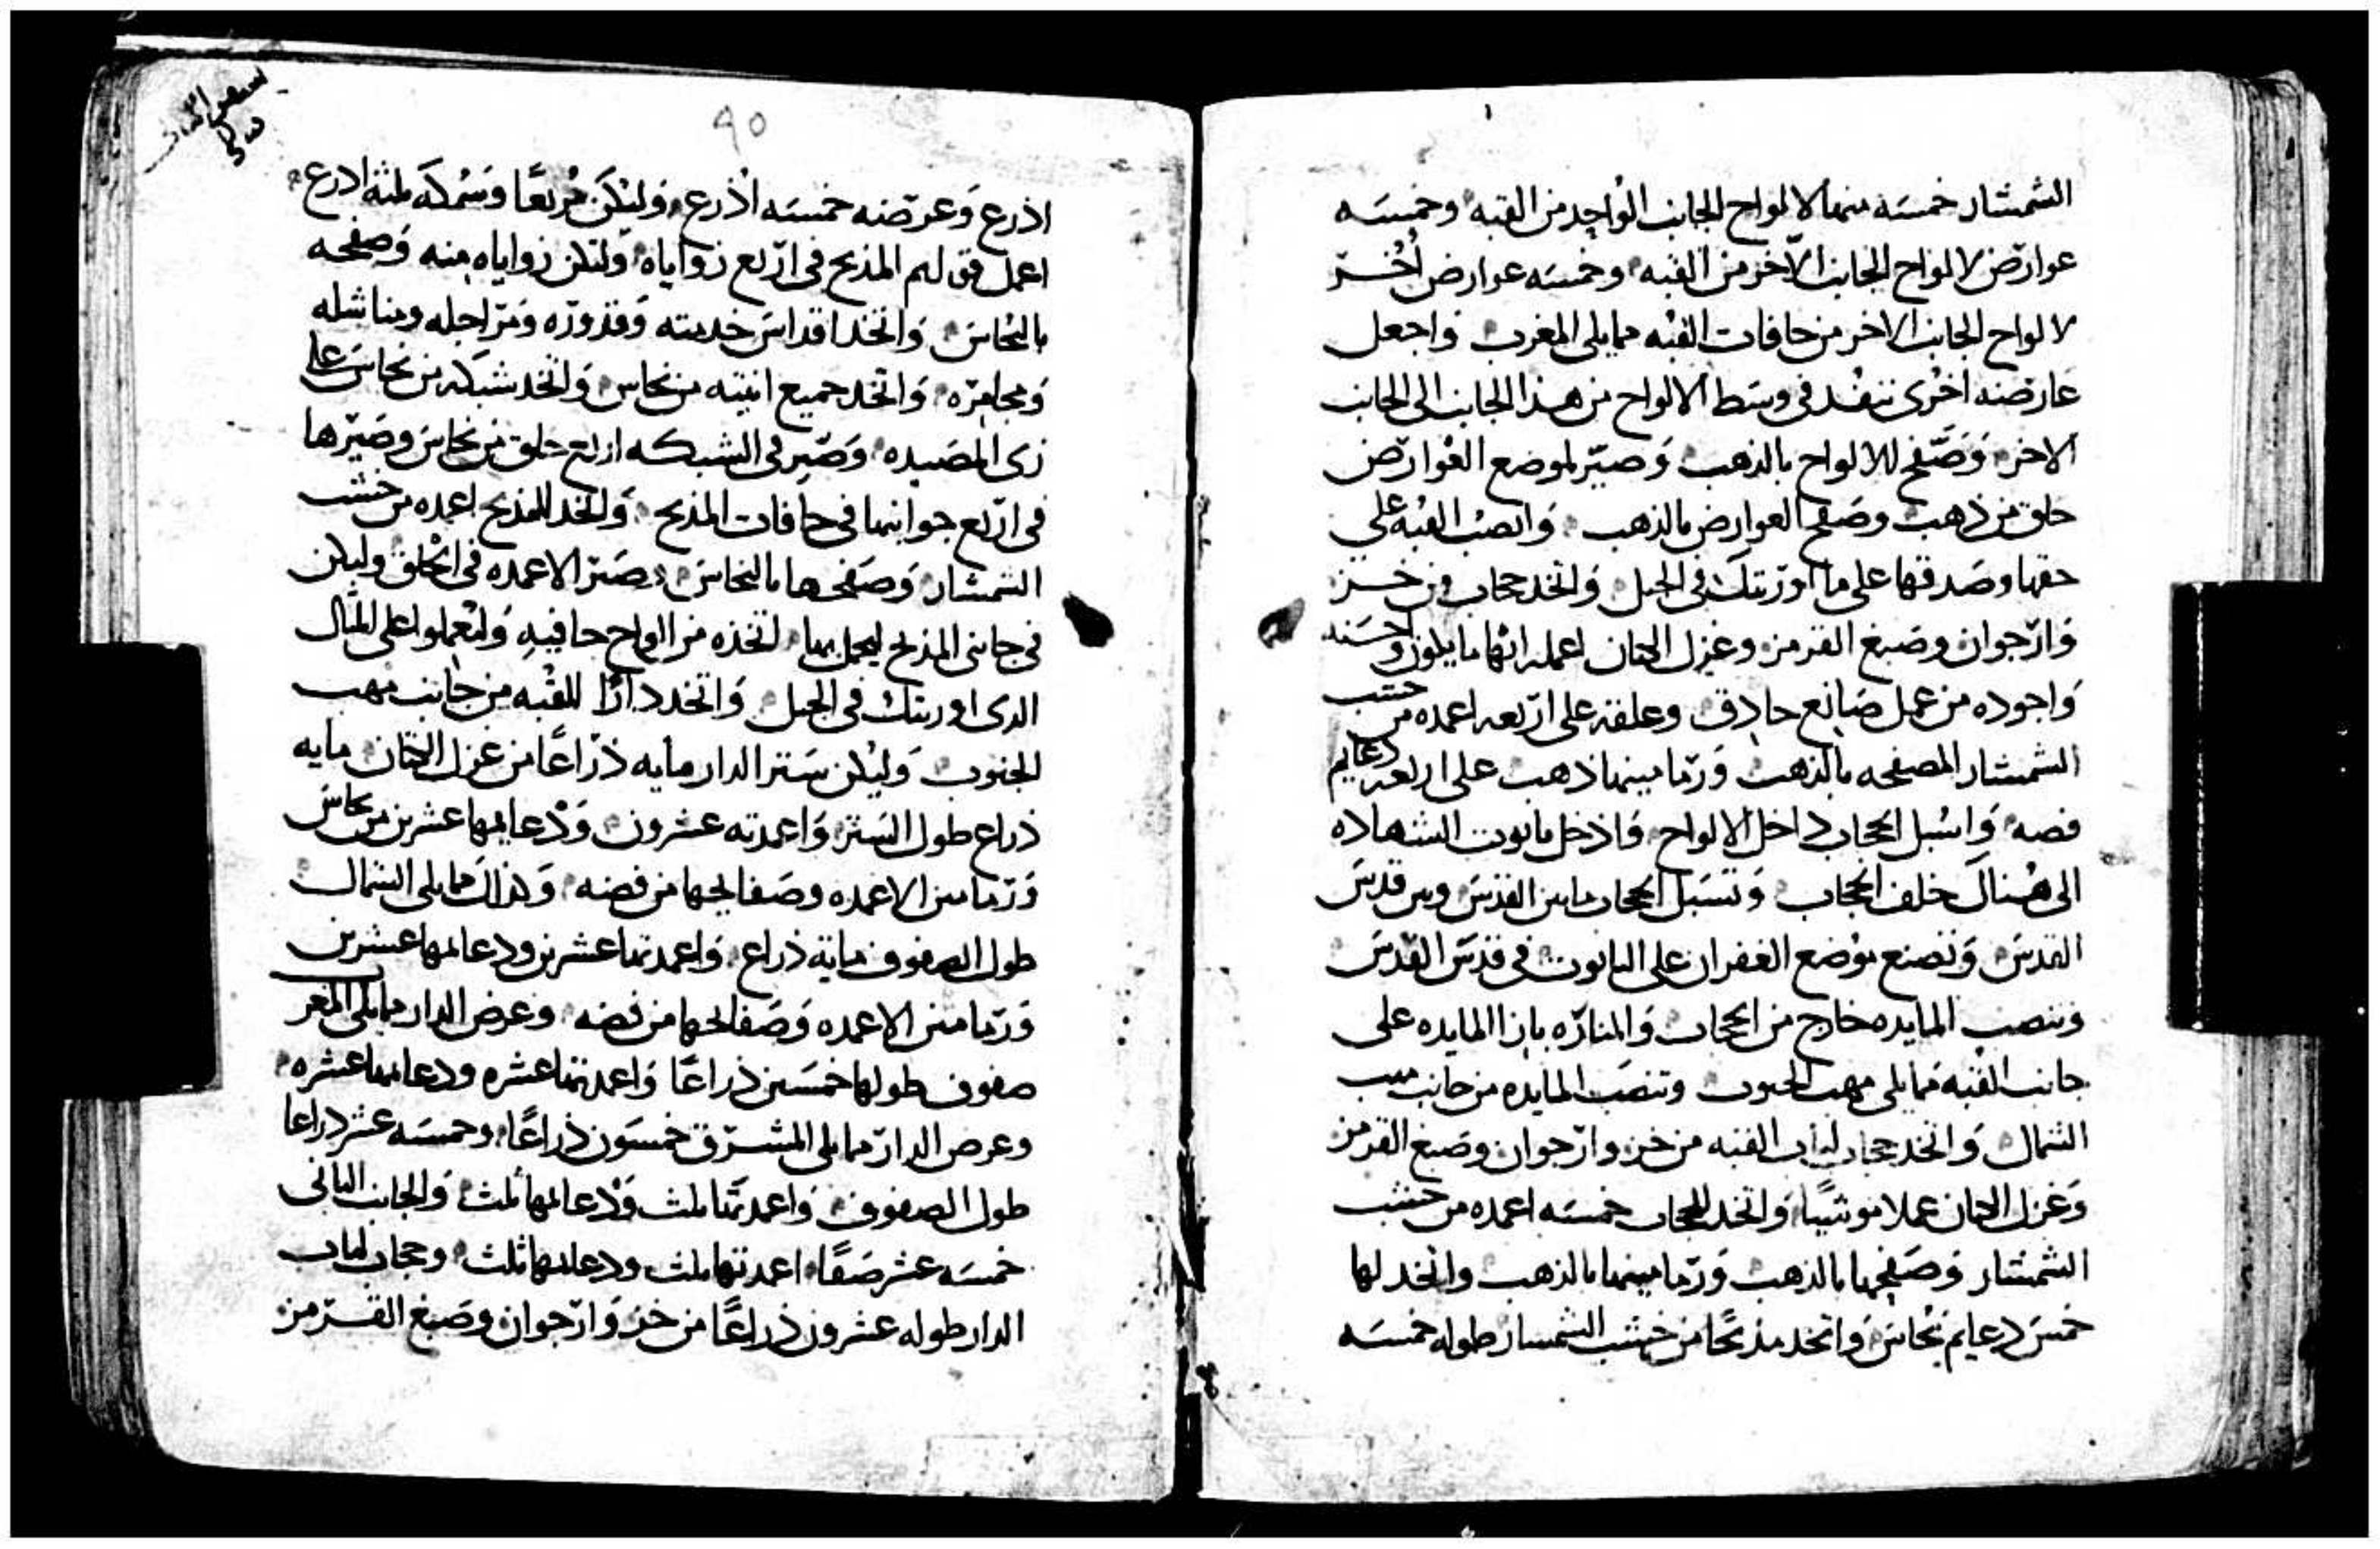 الشمشار خمسه منها لالواح الجانب الواحد من القبه وخمسه
عوارض لالواح الجانب الاخر من القبه وخمسه عوارض اخر
لالواح الجانب الاخر من حافات القبه مما يلى المغرب واجعل
عارضه اخرى تنفد فى وسط الالواح من هذا الجانب الى الجانب
الاخر وصفح الالواح بالذهب وصير لموضع العوارض
حلق من ذهب وصفح العوارض بالذهب وانصب القبه على
حقها وصدقها على ما اوريتك فى الجبل واتخد حجاب من خز
وارجوان وصبغ القرمز وغزل الكتان اعمله ابها ما يكون واحسنه
واجوده من عمل صانع حادق وعلقه على اربعه اعمده من خشب
الشمشار المصفحه بالذهب ورما مينها ذهب على اربعه دعايم
فضه واسبل الحجاب داخل الالواح وادخل تابوت الشهاده
الى هناك خلف الحجاب وتسبل الحجاب ما بين القدس وبين قدس
القدس وتصنع موضع الغفران على التابوت فى قدس القدس
وتنصب المايده خارج من الحجاب والمناره بازا المايده على
جانب القبه مما يلى مهب الجنوب وتنصب المايده من جانب مهب
الشمال واتخد حجاب لباب القبه من خز وارجوان وصبغ القرمز
وغزل الكتان عملا موشيا واتخد للحجاب خمسه اعمده من خشب
الشمشار وصفحها بالذهب ورما مينها بالذهب واتخد لها
خمس دعايم نحاس واتخد مذبحا من خشب الشمسار طوله خمسه
٩٥
اذرع وعرضه خمسه اذرع وليكن مربعا وسمكه ثلثه ادرع
اعمل قرون لهم المذبح فى اربع زواياه ولتكن زواياه منه وصفحه
بالنحاس واتخد اقداس خدمته وقدوره ومراجله ومناشله
ومجامره واتخد جميع انيته من نحاس واتخد شبكه من نحاس على
زى المصيده وصير فى الشبكه اربع حلق من نحاس وصيرها
فى اربع جوانبها فى حافات المذبح واتخد للمذبح اعمده من خشب
الشمشار وصفحها بالنحاس وصير الاعمده فى الحلق وليكن
فى جانبى المذبح ليحمل بها اتخذه من الواح حافيه وليعملوا على المثال
الدى اوريتك فى الجبل واتخد دارا للقبه من جانب مهب
الجنوب وليكن ستر الدار مايه ذراعا من غزل الكتان مايه
ذراع طول الستر واعمدته عشرون ودعايمها عشرين من نحاس
ورما مين الاعمده وصفايحها من فضه وكذلك مما يلى الشمال
طول الصفوف مايه ذراع واعمدتها عشرين ودعايمها عشرين
ورما مين الاعمده وصفايحها من فضه وعرض الدار مما يلى المغرب
صفوف طولها خمسين ذراعا واعمدتها عشره ودعايمها عشره
وعرض الدار مما يلى المشرق خمسون ذراعا وخمسه عشر دراعا
طول الصفوف واعمدتها ثلث ودعايمها ثلث والجانب الثانى
خمسه عشر صفا اعمدتها ثلث ودعايمها ثلث وحجاب لباب
الدار طوله عشرون ذراعا من خز وارجوان وصبغ القرمز